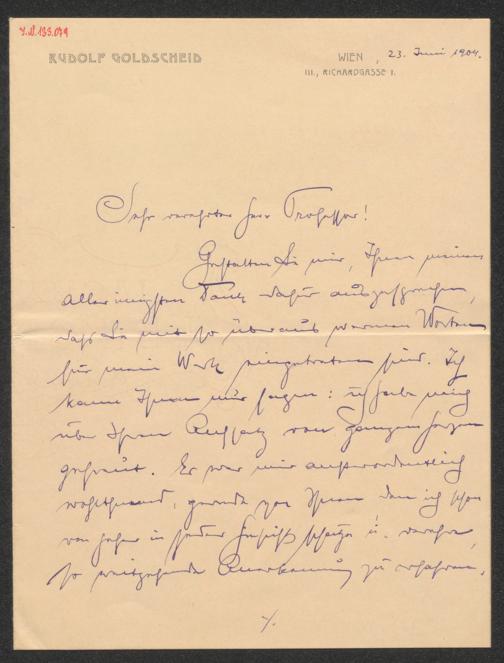 I.N. 133.079
RUDOLF GOLDSCHEID
WIEN, 23. Juni 1904.
III., RICHARDGASSE 1.
Sehr verehrter Herr Professor!
Gestatten Sie mir, Ihnen meinen
allerinnigsten Dank dafür auszusprechen,
daß Sie mit so überaus warmen Worten
für mein Werk eingetreten sind. Ich
kann Ihnen nur sagen: ich habe mich
über Ihren Aufsatz von ganzem Herzen
gefreut. Es war mir außerordentlich
wohlthuend, gerade von Ihnen, den ich schon
von jeher in jeder Hinsicht schätze u. verehre,
so weitgehende Anerkennung zu erfahren.